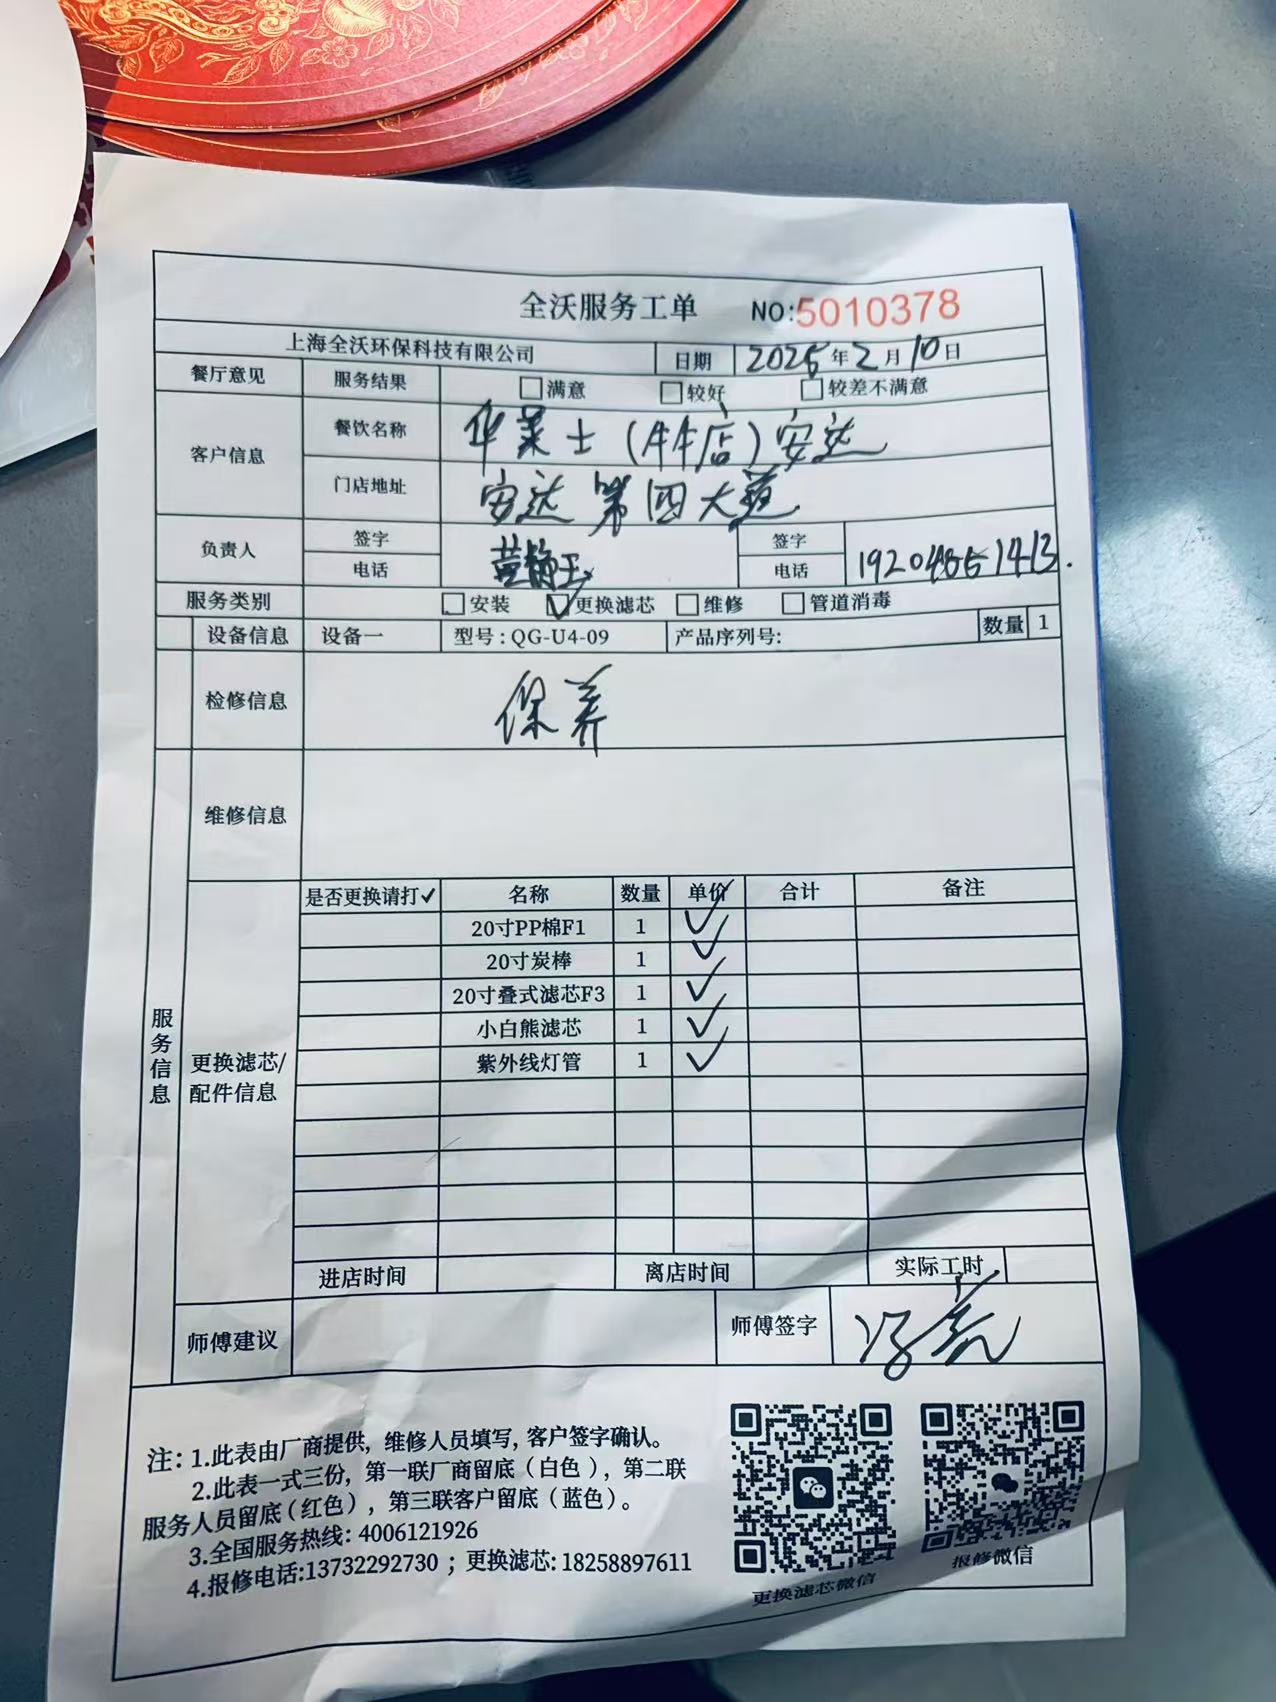 全沃服务工单 NO:5010378
上海全沃环保科技有限公司 日期 2025年2月10日
餐厅意见 服务结果 满意 较好 较差不满意
客户信息 餐饮名称 华莱士(牛牛店)安达
门店地址 安达第四大道
负责人 签字 签字
电话 黄静玉 电话 19204651413.
服务类别 安装 ✓更换滤芯 维修 管道消毒
设备信息 设备一 型号:QG-U4-09 产品序列号: 数量 1
检修信息 保养
维修信息
服务信息
更换滤芯/配件信息
是否更换请打✓ 名称 数量 单价 合计 备注
20寸PP棉F1 1 ✓
20寸炭棒 1 ✓
20寸叠式滤芯F3 1 ✓
小白熊滤芯 1 ✓
紫外线灯管 1 ✓
进店时间 离店时间 实际工时
师傅建议 师傅签字
注:1.此表由厂商提供,维修人员填写,客户签字确认。
2.此表一式三份,第一联厂商留底(白色),第二联
服务人员留底(红色),第三联客户留底(蓝色)。
3.全国服务热线:4006121926
4.报修电话:13732292730 ; 更换滤芯:18258897611
更换滤芯微信 报修微信